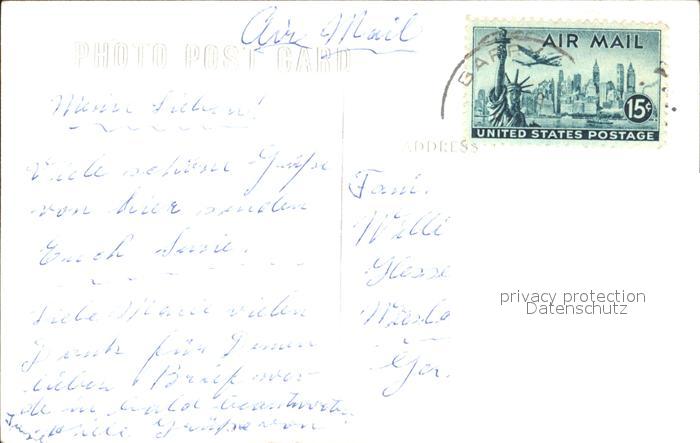 Air Mail
PHOTO POST CARD
AIR MAIL
15¢
UNITED STATES POSTAGE
GARY
ADDRESS
Meine Lieben!
Viele schöne Grüße
von hier senden
Euch
Liebe Marie vielen
Dank für Deinen
lieben Brief wer-
de ihn bald beantworten
viele Grüße von
Fam.
Willi
Ger.
privacy protection
Datenschutz